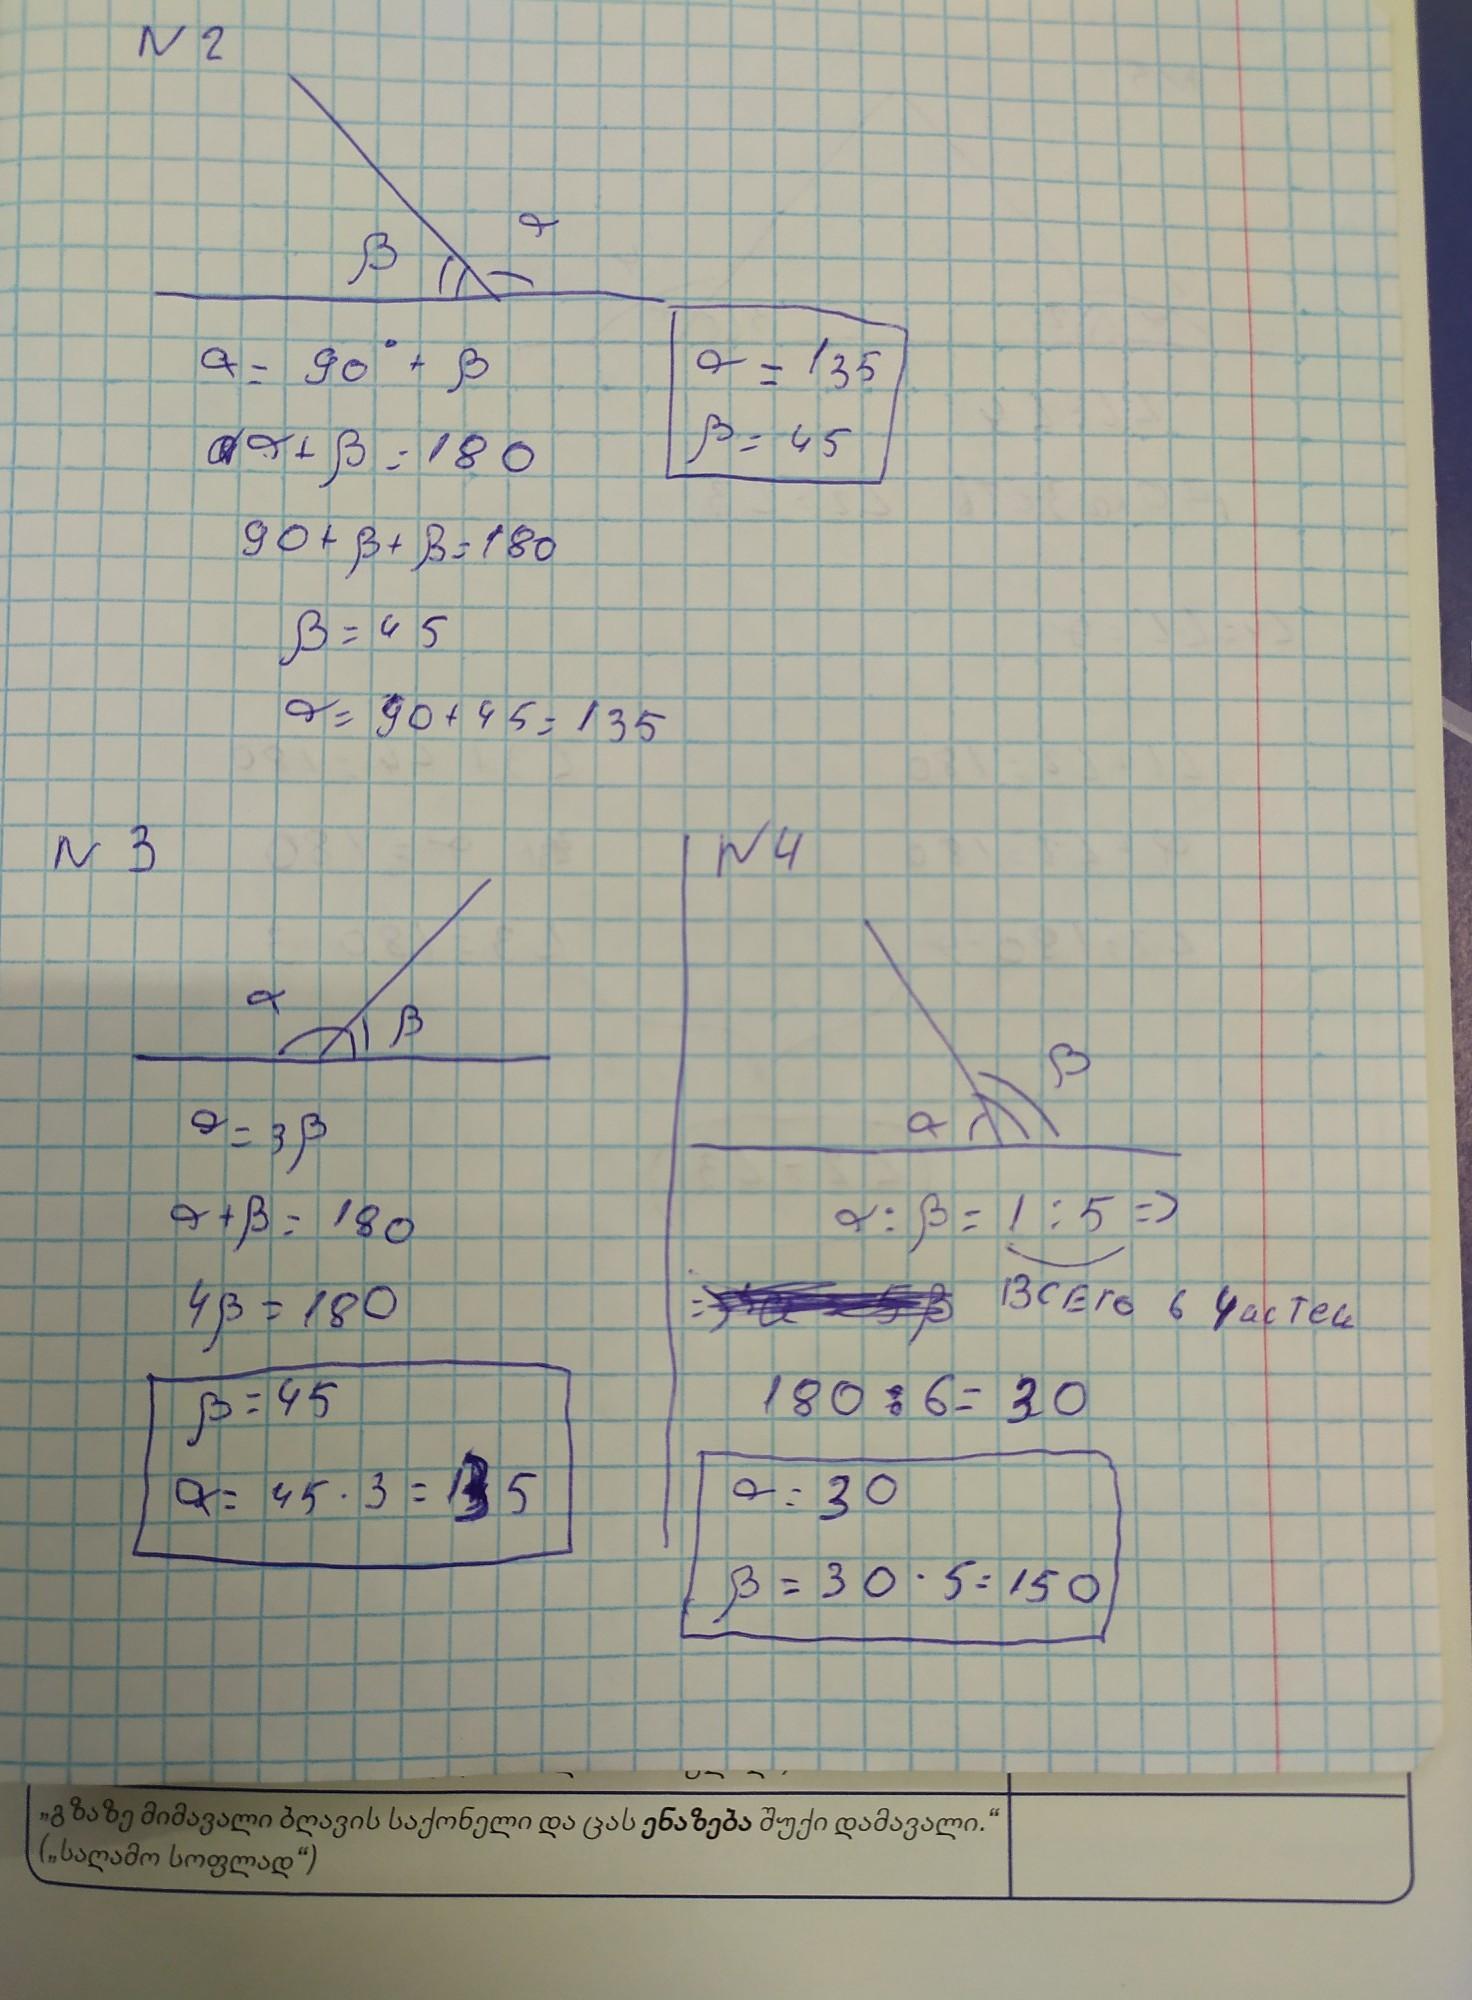 N 2
β α
α = 90° + β
α + β = 180
90 + β + β = 180
β = 45
α = 90 + 45 = 135
α = 135
β = 45
N 3
α β
α = 3β
α + β = 180
4β = 180
β = 45
α = 45 · 3 = 135
N 4
α β
α : β = 1 : 5 =>
Всего 6 частей
180 : 6 = 30
α = 30
β = 30 · 5 = 150
„გზაზე მიმავალი ბღავის საქონელი და ცას ენაზება შუქი დამავალი.“
(„საღამო სოფლად“)